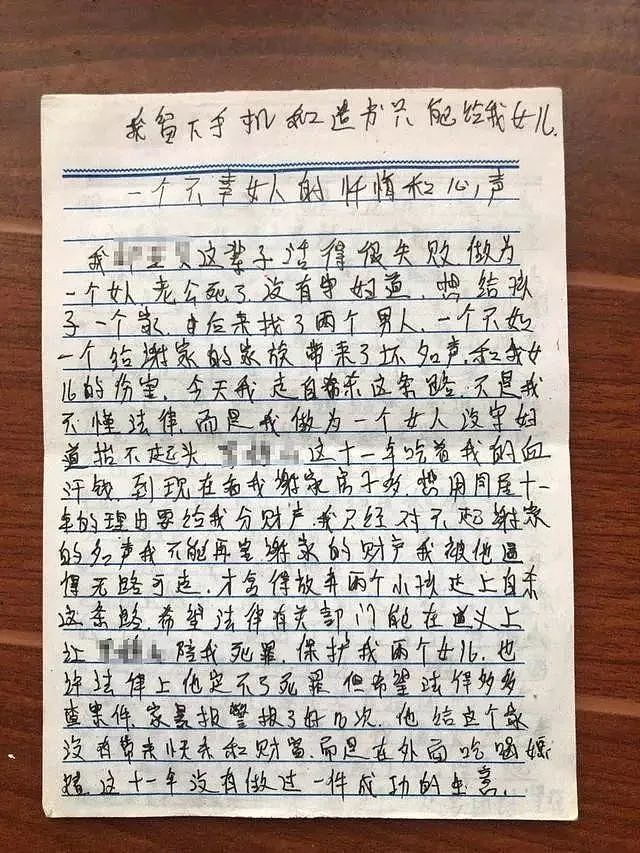 我留下手机和遗书只能给我女儿.
一个不幸女人的忏悔和心声
我 这辈子活得很失败做为
一个女人.老公死了没有守妇道.想给孩
子一个家.由后来找了两个男人.一个不如
一个给谢家的家族带来了坏名声.和我女
儿的伤害.今天我走自杀这条路.不是我
不懂法律.而是我做为一个女人没守妇
道抬不起头 这十一年吃着我的血
汗钱.到现在和我谢家 .想用同居十一
年的理由要给我分财产.我已经对不起谢家
的名声我不能再害谢家的财产我被他逼
得无路可走.才舍得放弃两个小孩走上自杀
这条路.希望法律有关部门能在道义上
让 陪我死罪.保护我两个女儿.也
许法律上他定不了死罪但希望法律多多
查案件.家暴报警报了好几次.他给这个家
没有带来快乐和财富.而是在外面吃喝嫖
赌.这十一年没有做过一件成功的生意.